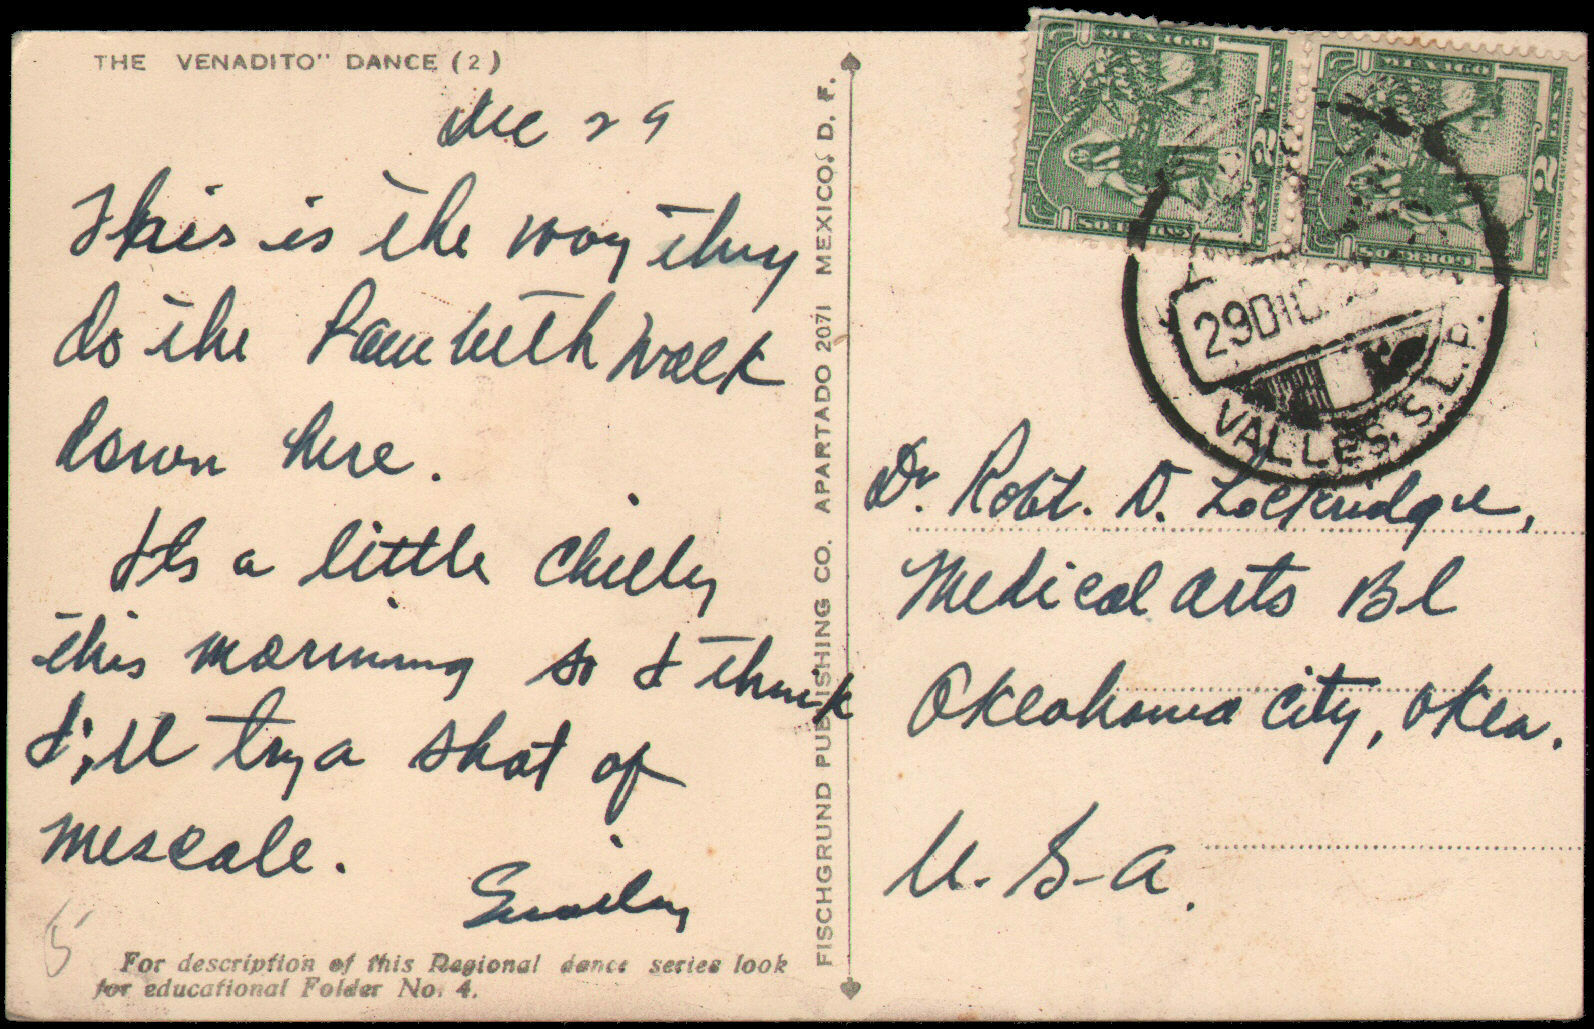 THE VENADITO" DANCE (2)
Dec 29
This is the way they
do the Lambeth Walk
down here.
It's a little chilly
this morning so I think
I'll try a shot of
mescale.
Smiley
5
For description of this Regional dance series look
for educational Folder No. 4.
FISCHGRUND PUBLISHING CO. APARTADO 2071 MEXICO, D. F.
MEXICO
2
CORREOS
MEXICO
2
CORREOS
29 DIC.
VALLES, S.L.P.
Dr. Robt. D. Lockridge,
Medical Arts Bl
Oklahoma City, Okla.
U.S.A.